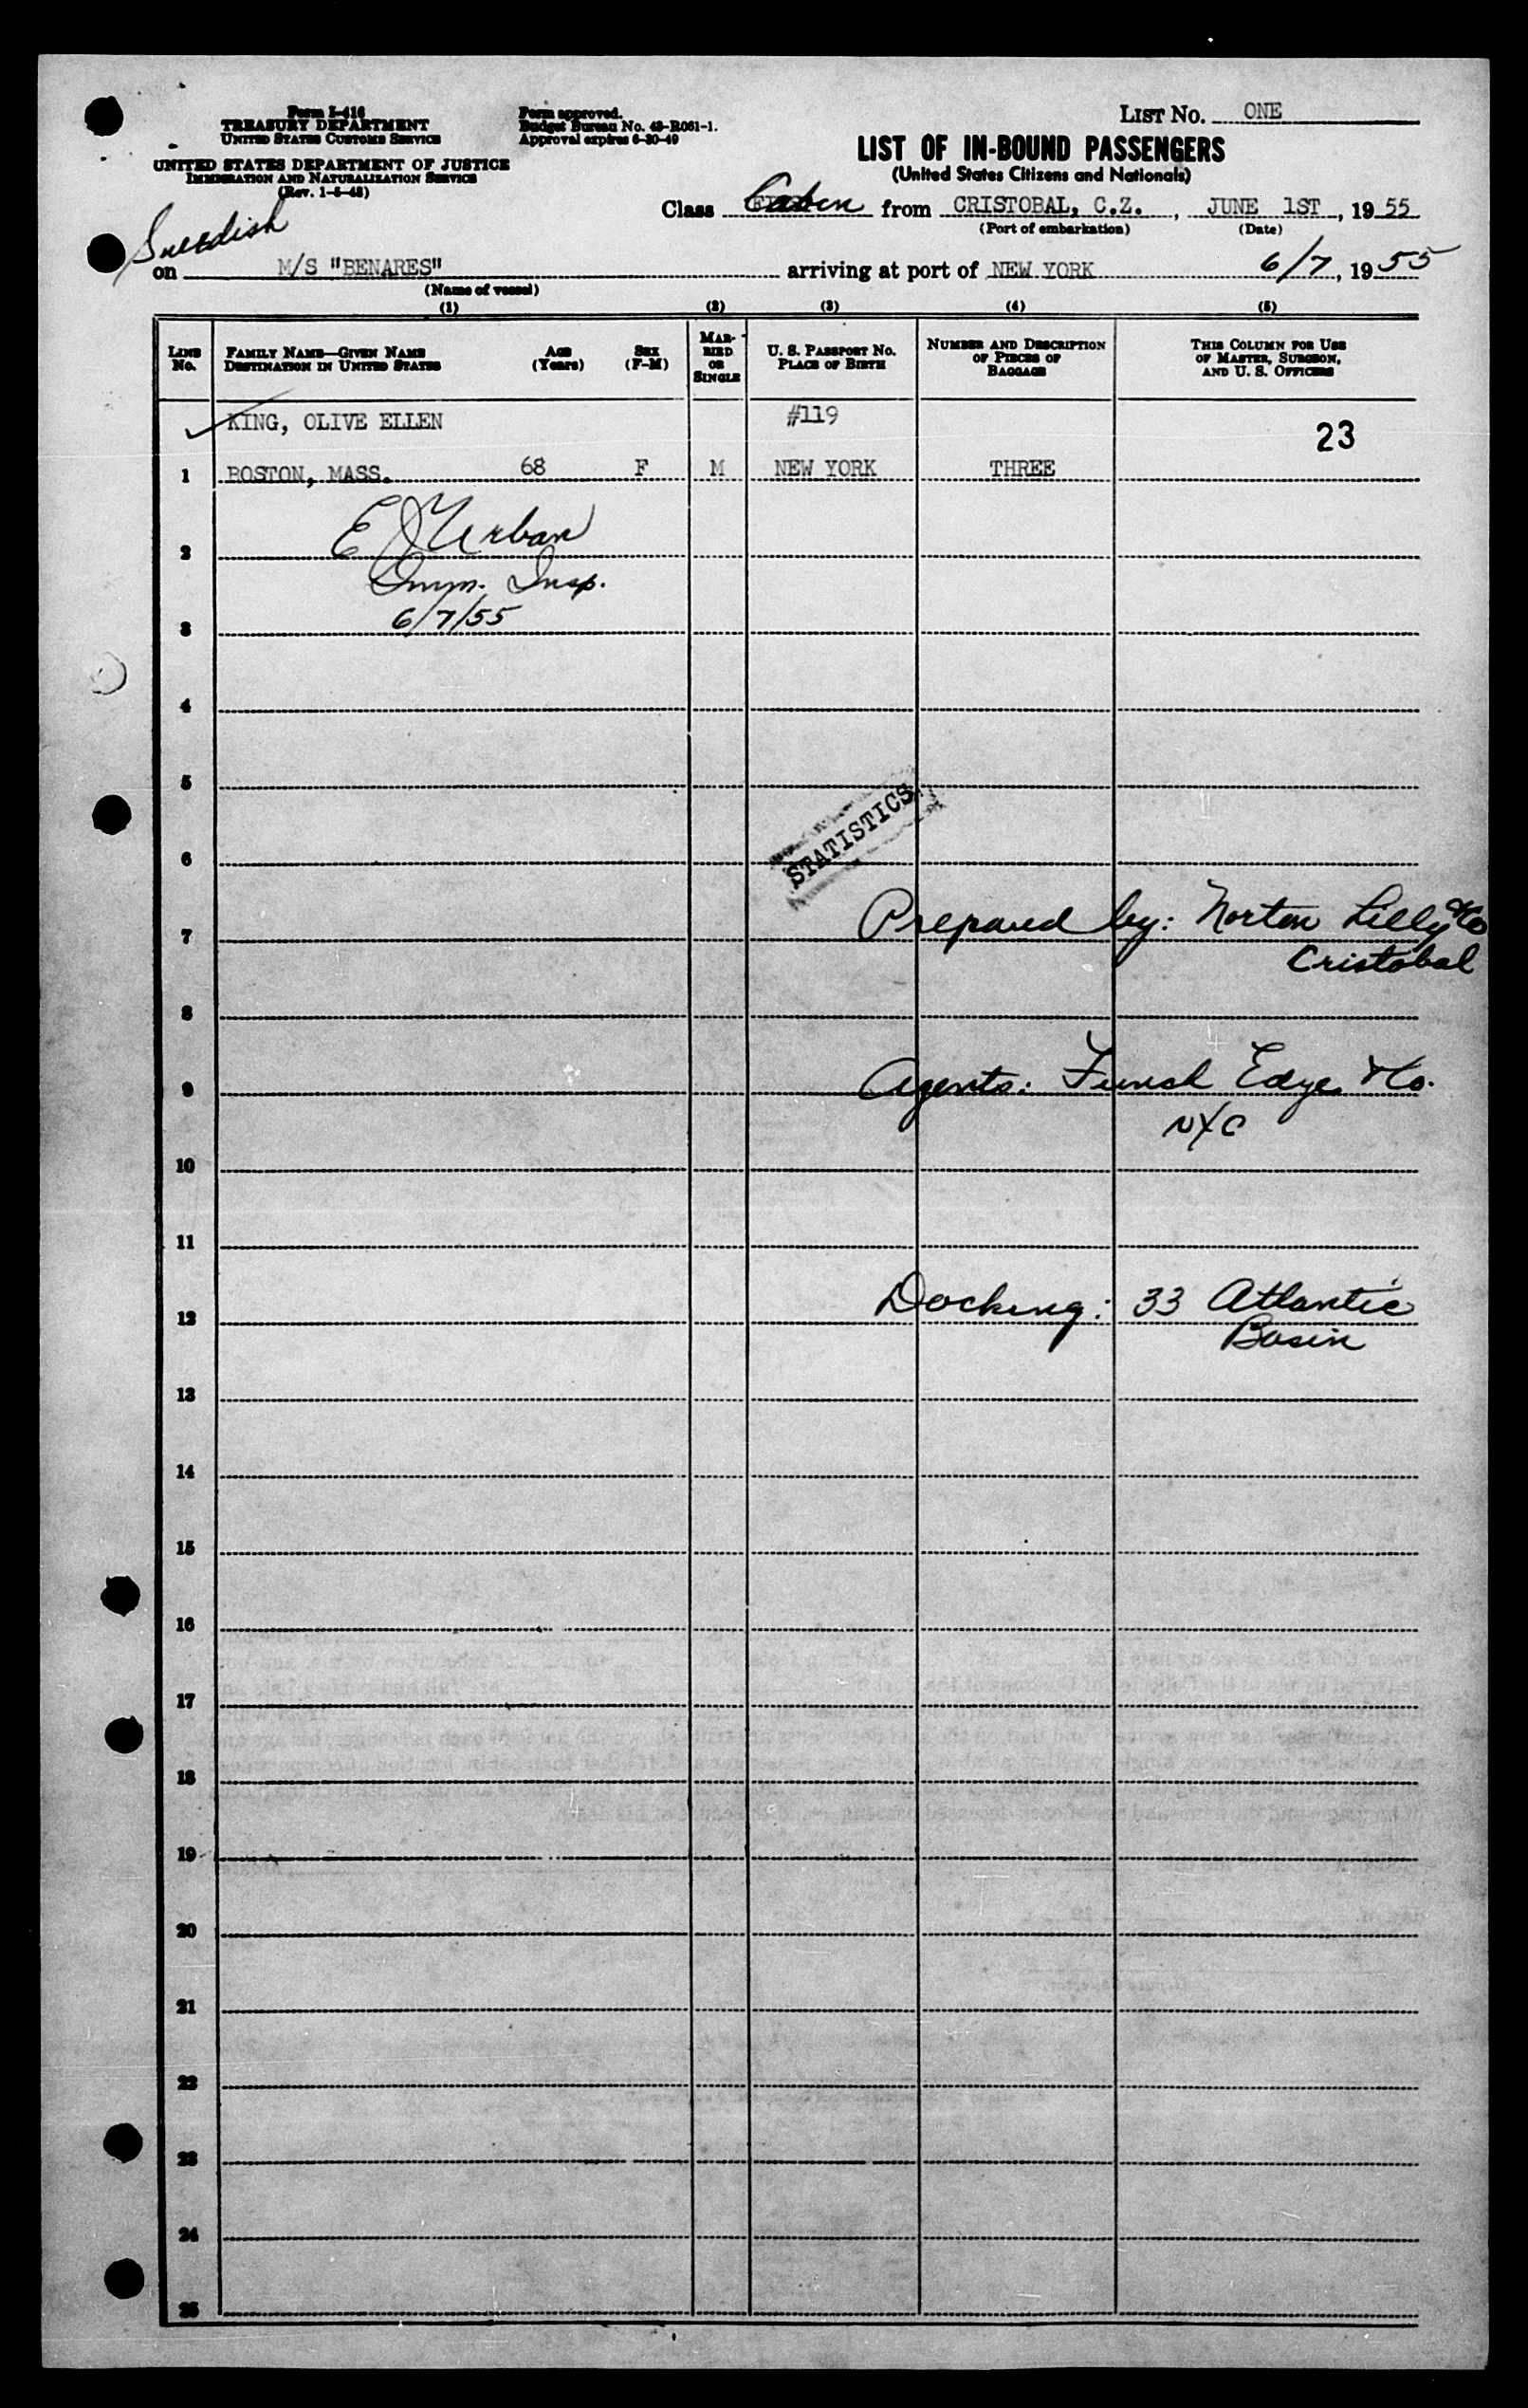 Form I-416
TREASURY DEPARTMENT
UNITED STATES CUSTOMS SERVICE
UNITED STATES DEPARTMENT OF JUSTICE
IMMIGRATION AND NATURALIZATION SERVICE
(Rev. 1-5-48)
Form approved.
Budget Bureau No. 43-R061-1.
Approval expires 6-30-49
LIST No. ONE
LIST OF IN-BOUND PASSENGERS
(United States Citizens and Nationals)
Class Cabin from CRISTOBAL, C.Z., JUNE 1ST, 1955
(Port of embarkation) (Date)
Swedish
on M/S "BENARES" arriving at port of NEW YORK 6/7, 1955
(Name of vessel)
(1) (2) (3) (4) (5)
LINE No.
FAMILY NAME—GIVEN NAME
DESTINATION IN UNITED STATES
AGE (Years)
SEX (F-M)
MARRIED OR SINGLE
U. S. PASSPORT No.
PLACE OF BIRTH
NUMBER AND DESCRIPTION OF PIECES OF BAGGAGE
THIS COLUMN FOR USE OF MASTER, SURGEON, AND U. S. OFFICERS
KING, OLIVE ELLEN #119 23
1 BOSTON, MASS. 68 F M NEW YORK THREE
E J Urban
2
Imm. Insp.
6/7/55
3
4
5
STATISTICS
6
Prepared by: Norton Lilly & Co
7
Cristobal
8
Agents: Funch Edye & Co.
9
NYC
10
11
Docking: 33 Atlantic
12
Basin
13
14
15
16
17
18
19
20
21
22
23
24
25